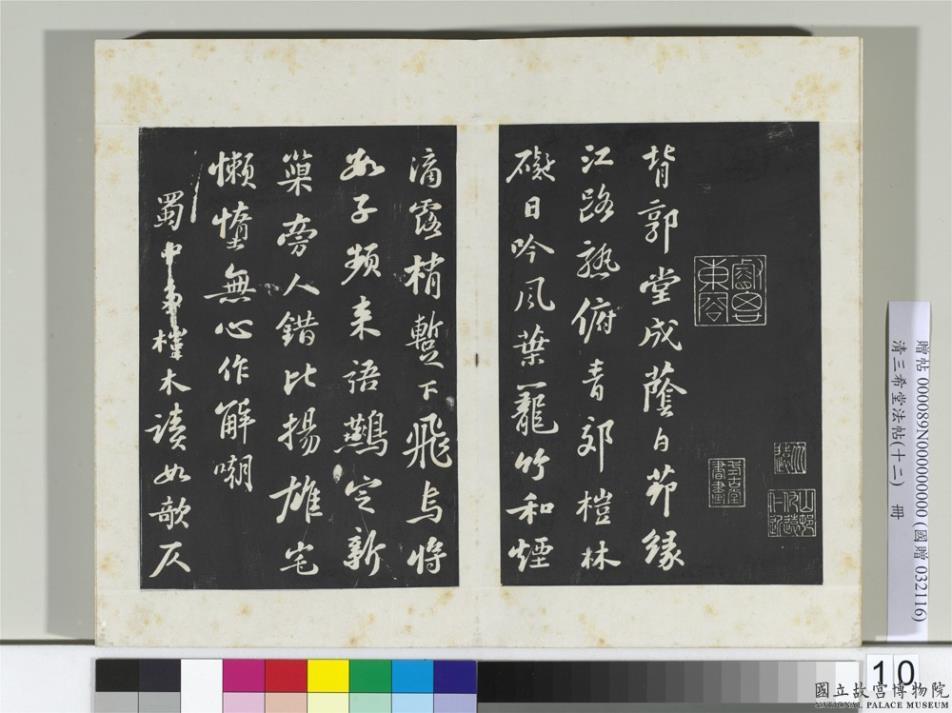 背郭堂成蔭白茆緣
江路熟俯青郊榿林
礙日吟風葉籠竹和煙
滴露梢暫下飛烏將
數子頻來語鷰定新
巢旁人錯比揚雄宅
懶惰無心作解嘲
蜀中多榿木讀如欹仄
贈帖 000089N000000000 (國贈 032116)
清三希堂法帖(十二) 冊
10
國立故宮博物院
NATIONAL PALACE MUSEUM